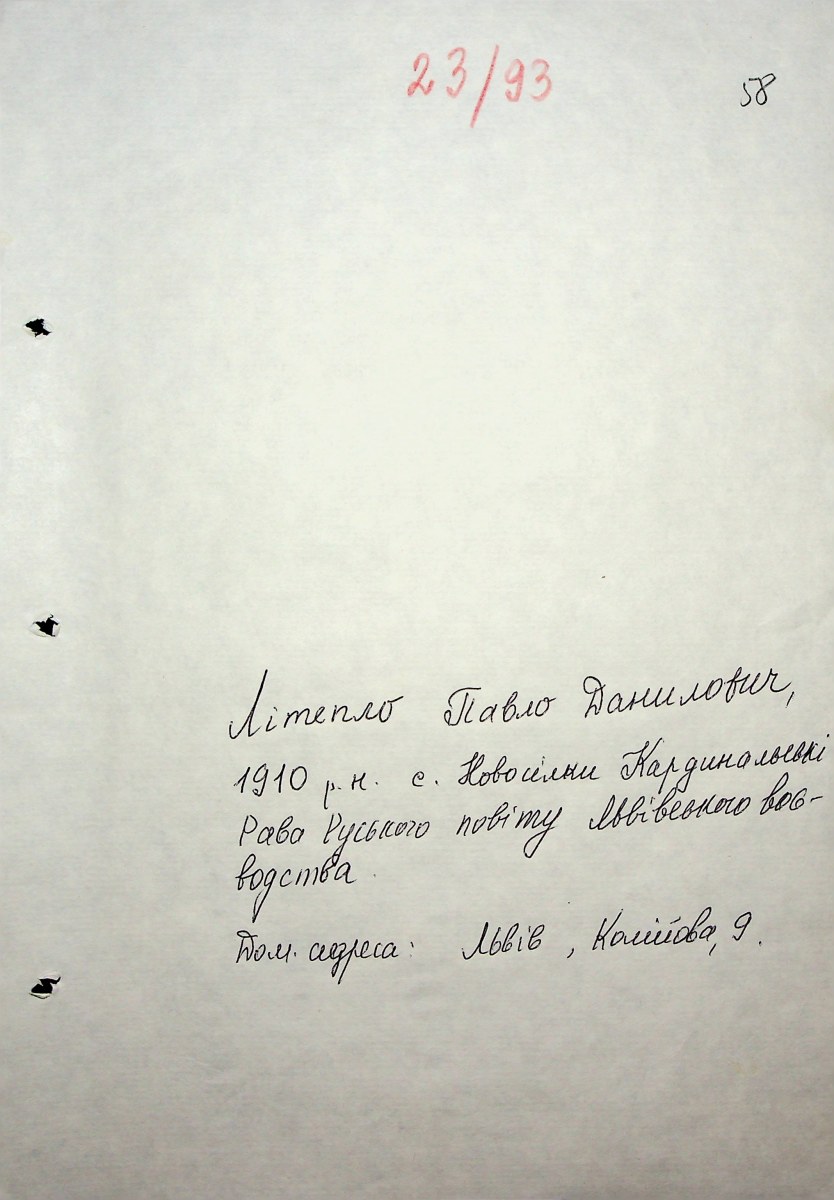 23/93
58
Літепло Павло Данилович,
1910 р.н. с. Новосілки Кардинальські
Рава Руського повіту Львівського воє-
водства
Дом. адреса: Львів, Колійова, 9.